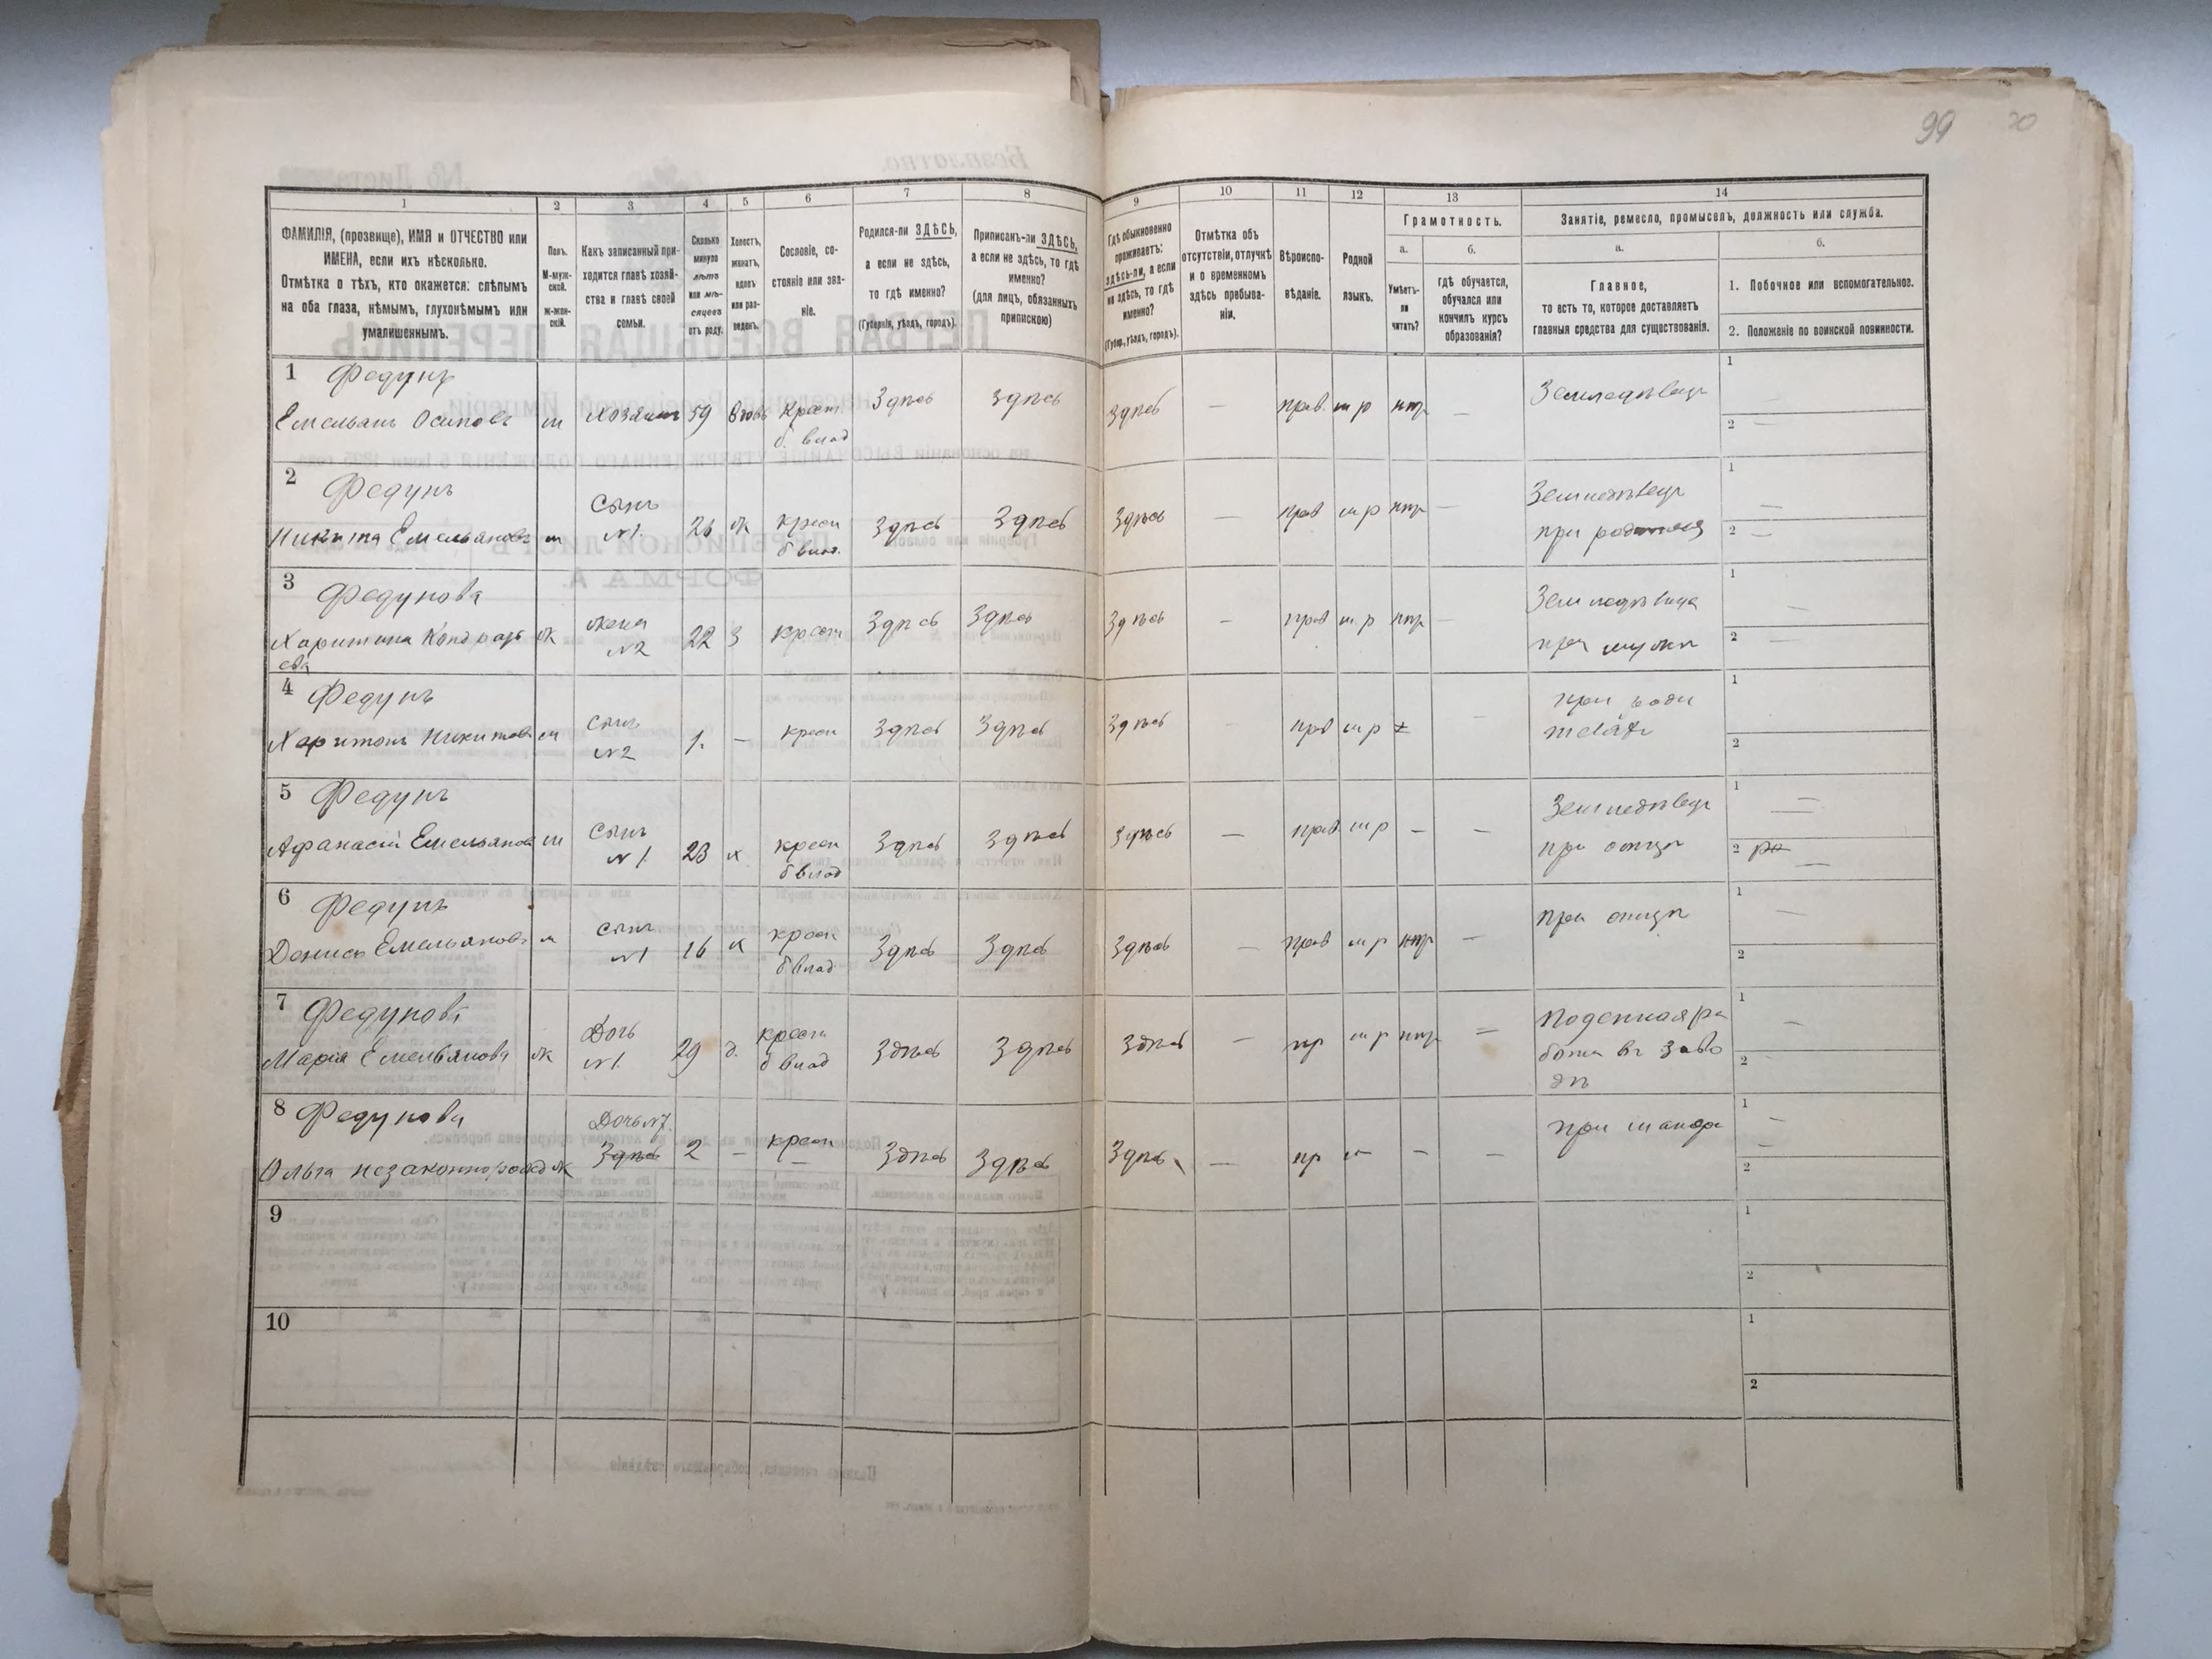 99 20
1 2 3 4 5 6 7 8 9 10 11 12 13 14
ФАМИЛІЯ, (прозвище), ИМЯ и ОТЧЕСТВО или
ИМЕНА, если ихъ нѣсколько.
Отмѣтка о тѣхъ, кто окажется: слѣпымъ
на оба глаза, нѣмымъ, глухонѣмымъ или
умалишеннымъ.
Полъ.
М-муж-
ской.
Ж-жен-
скій.
Какъ записанный при-
ходится главѣ хозяй-
ства и главѣ своей
семьи.
Сколько
минуло
лѣтъ
или мѣ-
сяцевъ
отъ роду.
Холостъ,
женатъ,
вдовъ
или раз-
веденъ.
Сословіе, со-
стояніе или зва-
ніе.
Родился-ли ЗДѢСЬ,
а если не здѣсь,
то гдѣ именно?
(Губернія, уѣздъ, городъ).
Приписанъ-ли ЗДѢСЬ,
а если не здѣсь, то гдѣ
именно?
(для лицъ, обязанныхъ
припискою)
Гдѣ обыкновенно
проживаетъ:
здѣсь-ли, а если
не здѣсь, то гдѣ
именно?
(Губер., уѣздъ, городъ).
Отмѣтка объ
отсутствіи, отлучкѣ
и о временномъ
здѣсь пребыва-
ніи.
Вѣроиспо-
вѣданіе.
Родной
языкъ.
Грамотность.
а.
Умѣетъ-
ли
читать?
б.
гдѣ обучается,
обучался или
кончилъ курсъ
образованія?
Занятіе, ремесло, промыселъ, должность или служба.
а.
Главное,
то есть то, которое доставляетъ
главныя средства для существованія.
б.
1. Побочное или вспомогательное.
2. Положеніе по воинской повинности.
1 Федунъ
Емельянъ Осиповъ м Хозяинъ 59 вдовъ Крест. Здѣсь Здѣсь Здѣсь — прав. м р нтр — Земледѣлецъ 1
б. влад 2
2 Федунъ
Никита Емельяновъ м Сынъ N1. 26 ж крест Здѣсь Здѣсь Здѣсь — прав м р нтр — Земледѣлецъ 1 —
б влад. при 2 —
3 Федунова
Харитина Кондрать ж жена N2 22 З крест Здѣсь Здѣсь Здѣсь — прав м.р нтр — 1 —
ева при мужѣ 2 —
4 Федунъ
Харитонъ Никитовъ м сынъ N2 1. — крест Здѣсь Здѣсь Здѣсь — прав м р — при роди 1
2
5 Федунъ
Афанасій Емельяновъ м Сынъ N1. 23 х крест Здѣсь Здѣсь Здѣсь — прав. м р — — Земледѣлецъ 1 —
б влад при отцѣ 2 —
6 Федунъ
Денисъ Емельяновъ м сынъ N1 16 х крест Здѣсь Здѣсь Здѣсь — прав м р нтр — при отцѣ 1 —
б влад 2
7 Федунова
Марія Емельянова ж Дочь N1. 29 д. крест Здѣсь Здѣсь Здѣсь — пр м р нтр — Поденная ра 1 —
б влад бота въ заво 2
дѣ
8 Федунова
Ольга незаконнорожд ж Дочь N7. Здѣсь 2 — крест Здѣсь Здѣсь Здѣсь — пр м — — при 1 —
2
9 1
2
10 1
2